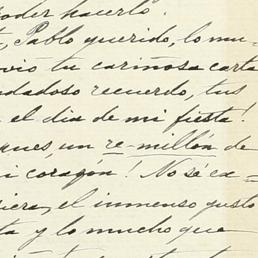 poder hacerlo".
, Pablo querido, lo mu-
ovió tu cariñosa carta
ndadoso recuerdo, tus
el dia de mi fiesta!
ques, un re-millón de
i corazón! No sé ex-
siera, el inmenso gusto
ta y lo mucho que